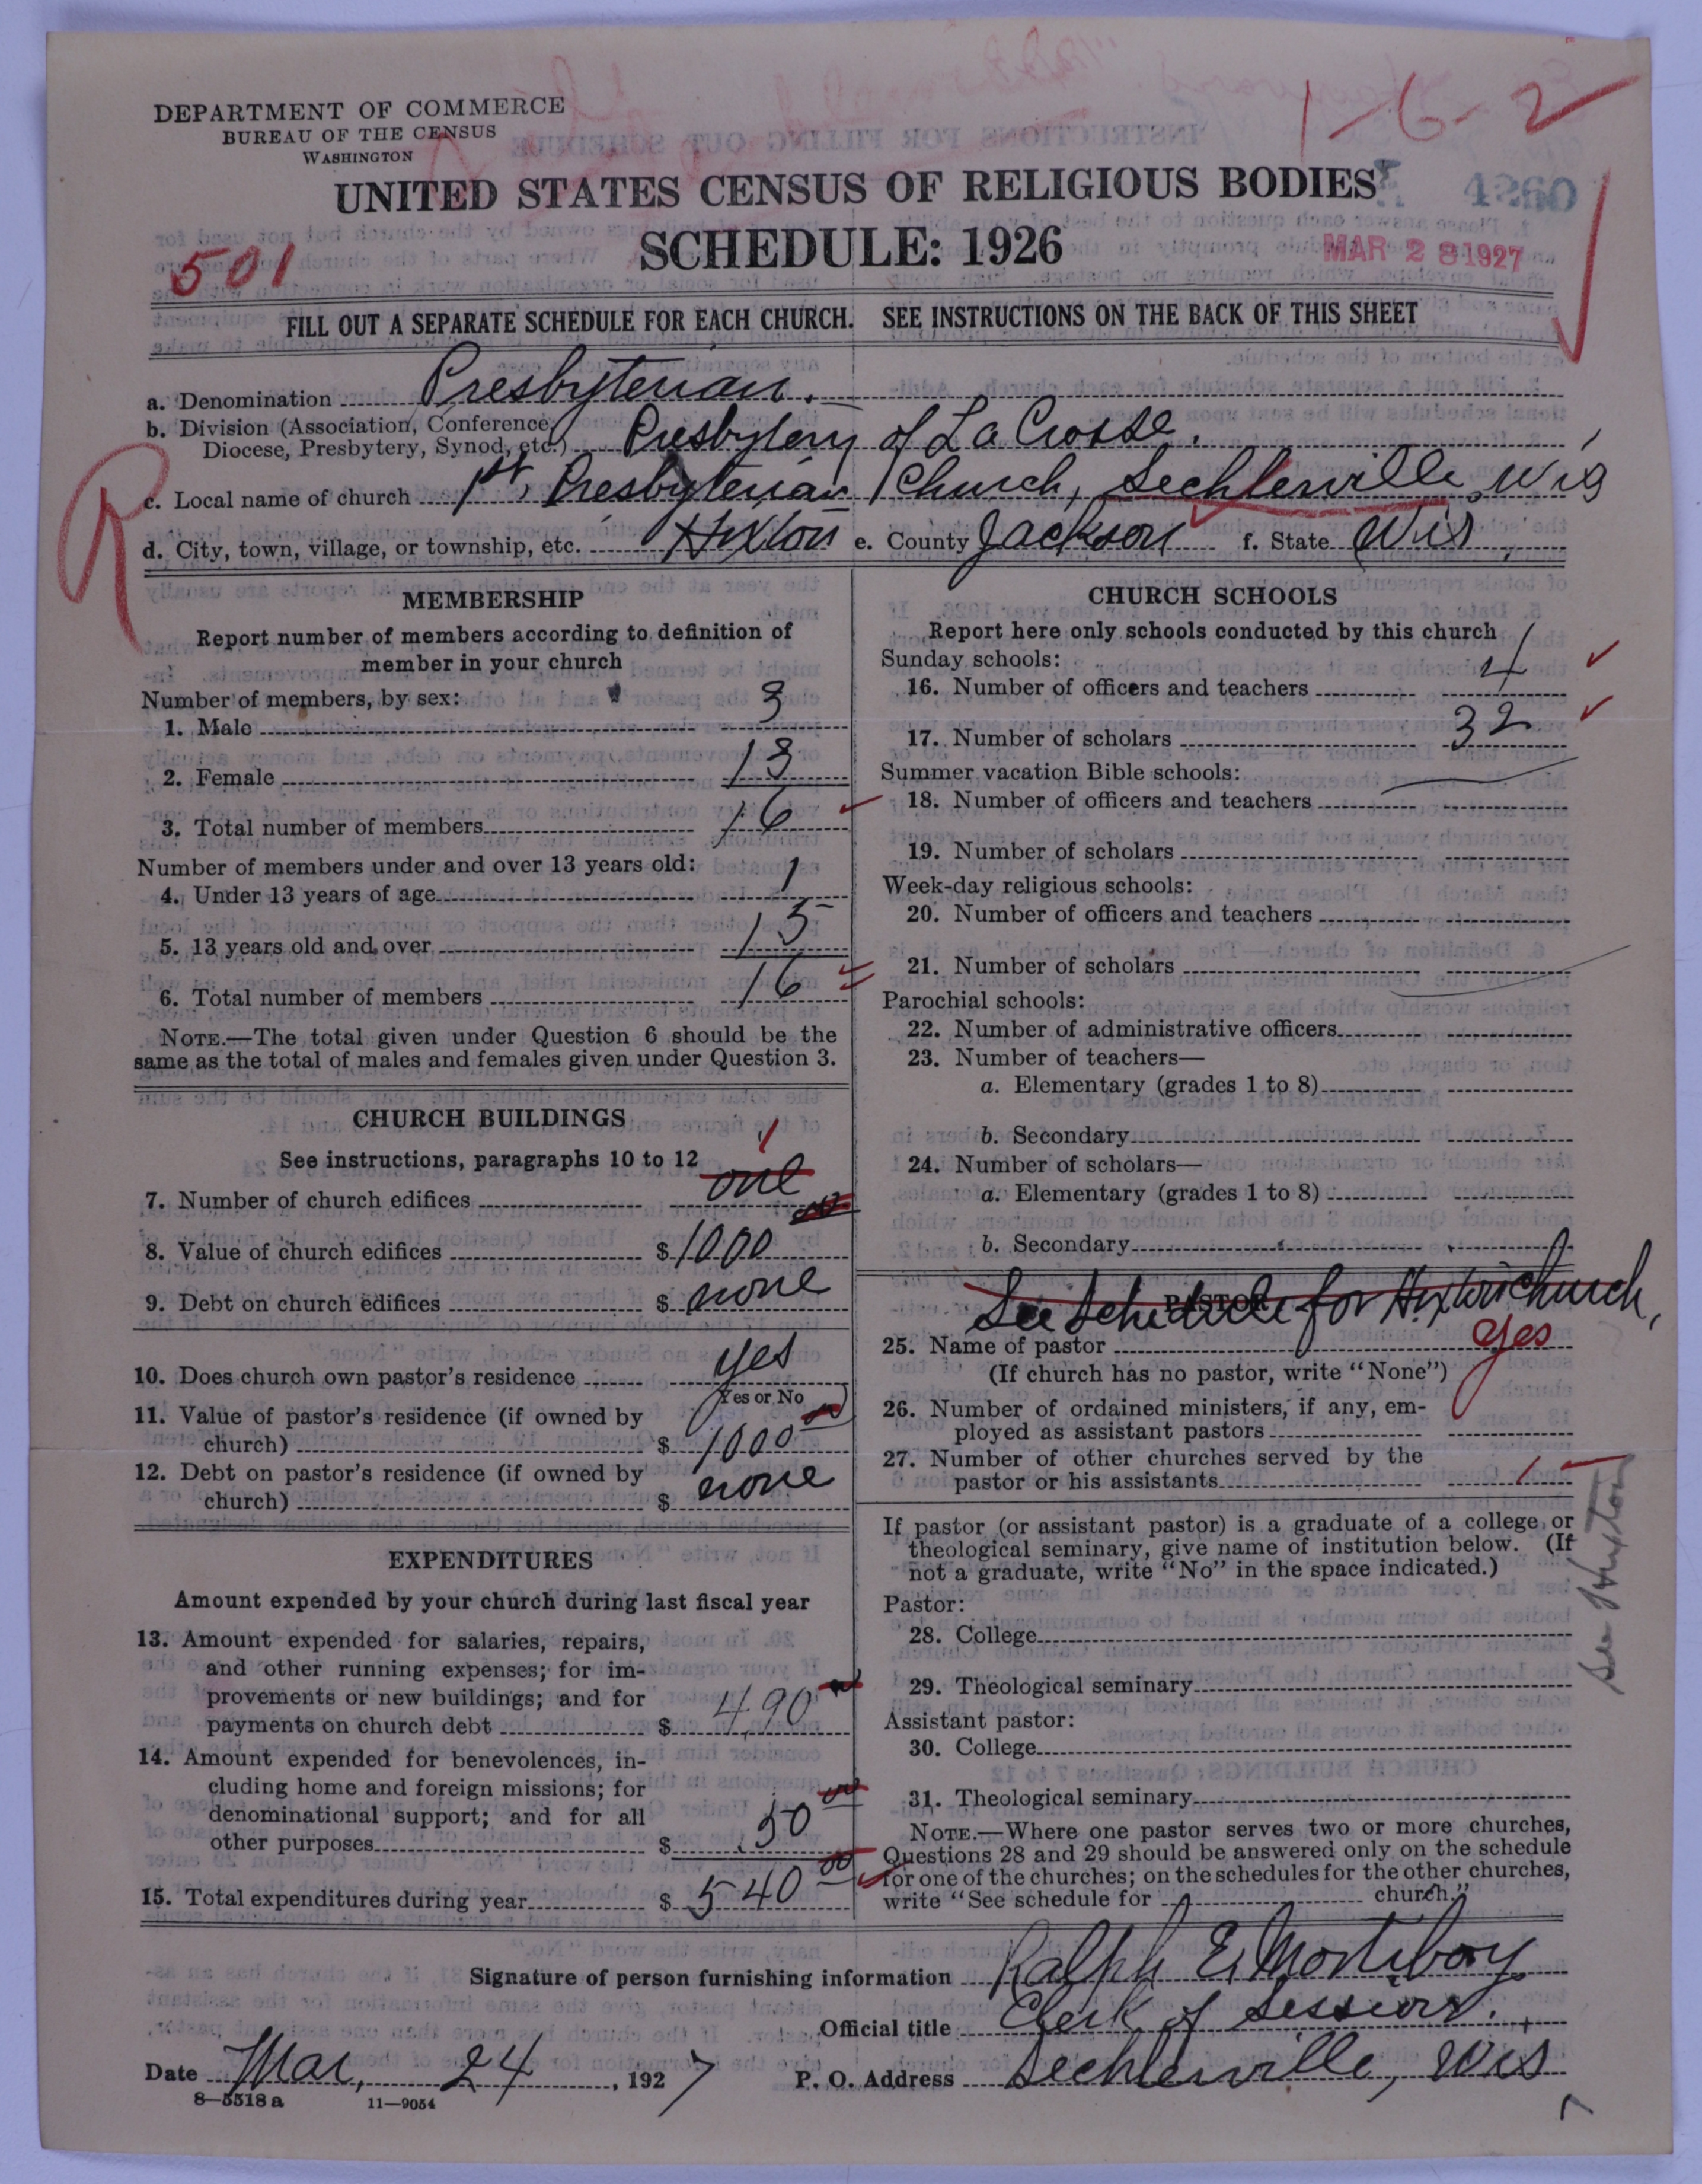 1-6-2
DEPARTMENT OF COMMERCE
BUREAU OF THE CENSUS
WASHINGTON
UNITED STATES CENSUS OF RELIGIOUS BODIES
4260
SCHEDULE: 1926
MAR 28 1927
501
FILL OUT A SEPARATE SCHEDULE FOR EACH CHURCH. SEE INSTRUCTIONS ON THE BACK OF THIS SHEET
a. Denomination Presbyterian.
b. Division (Association, Conference,
Diocese, Presbytery, Synod, etc.) Presbytery of La Crosse.
R
c. Local name of church 1st, Presbyterian Church, Sechlerville, Wis
d. City, town, village, or township, etc. Hixton e. County Jackson f. State Wis,
MEMBERSHIP
Report number of members according to definition of
member in your church
Number of members, by sex:
1. Male 3
2. Female 13
3. Total number of members 16
Number of members under and over 13 years old:
4. Under 13 years of age 1
5. 13 years old and over 15
6. Total number of members 16
NOTE.—The total given under Question 6 should be the
same as the total of males and females given under Question 3.
CHURCH BUILDINGS
See instructions, paragraphs 10 to 12
1
7. Number of church edifices one
8. Value of church edifices $ 1000 00
9. Debt on church edifices $ none
10. Does church own pastor's residence yes
Yes or No
11. Value of pastor's residence (if owned by
church) $ 1000 00
12. Debt on pastor's residence (if owned by
church) $ none
EXPENDITURES
Amount expended by your church during last fiscal year
13. Amount expended for salaries, repairs,
and other running expenses; for im-
provements or new buildings; and for
payments on church debt $ 490
14. Amount expended for benevolences, in-
cluding home and foreign missions; for
denominational support; and for all
other purposes $ 50 00
15. Total expenditures during year $ 540 00
CHURCH SCHOOLS
Report here only schools conducted by this church
Sunday schools:
16. Number of officers and teachers 4
17. Number of scholars 32
Summer vacation Bible schools:
18. Number of officers and teachers
19. Number of scholars
Week-day religious schools:
20. Number of officers and teachers
21. Number of scholars
Parochial schools:
22. Number of administrative officers
23. Number of teachers—
a. Elementary (grades 1 to 8)
b. Secondary
24. Number of scholars—
a. Elementary (grades 1 to 8)
b. Secondary
PASTOR
See Schedule for Hixton Church,
25. Name of pastor yes
(If church has no pastor, write "None")
26. Number of ordained ministers, if any, em-
ployed as assistant pastors
27. Number of other churches served by the
pastor or his assistants 1
If pastor (or assistant pastor) is a graduate of a college or
theological seminary, give name of institution below. (If
not a graduate, write "No" in the space indicated.)
Pastor:
28. College
29. Theological seminary
Assistant pastor:
30. College
31. Theological seminary
NOTE.—Where one pastor serves two or more churches,
Questions 28 and 29 should be answered only on the schedule
for one of the churches; on the schedules for the other churches,
write "See schedule for church."
See Hixton
Signature of person furnishing information Ralph E. Mortiboy
Official title Clerk of Session.
Date Mar, 24, 1927 P. O. Address Sechlerville, Wis
8—5518 a 11—9054
7